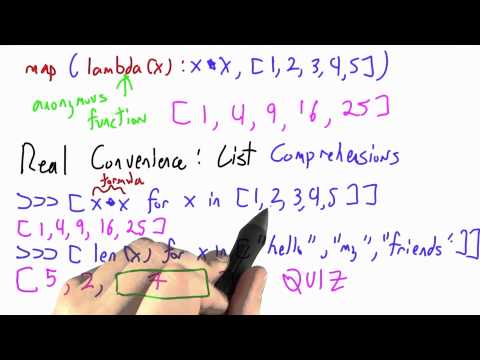 map (lambda(x): x*x, [1,2,3,4,5])
anonymous function
[1, 4, 9, 16, 25]
Real Convenience: List Comprehensions
formula
>>> [x*x for x in [1,2,3,4,5]]
[1,4,9,16,25]
>>> [len(x) for x in ["hello","my","friends"]]
[5, 2, 7
QUIZ